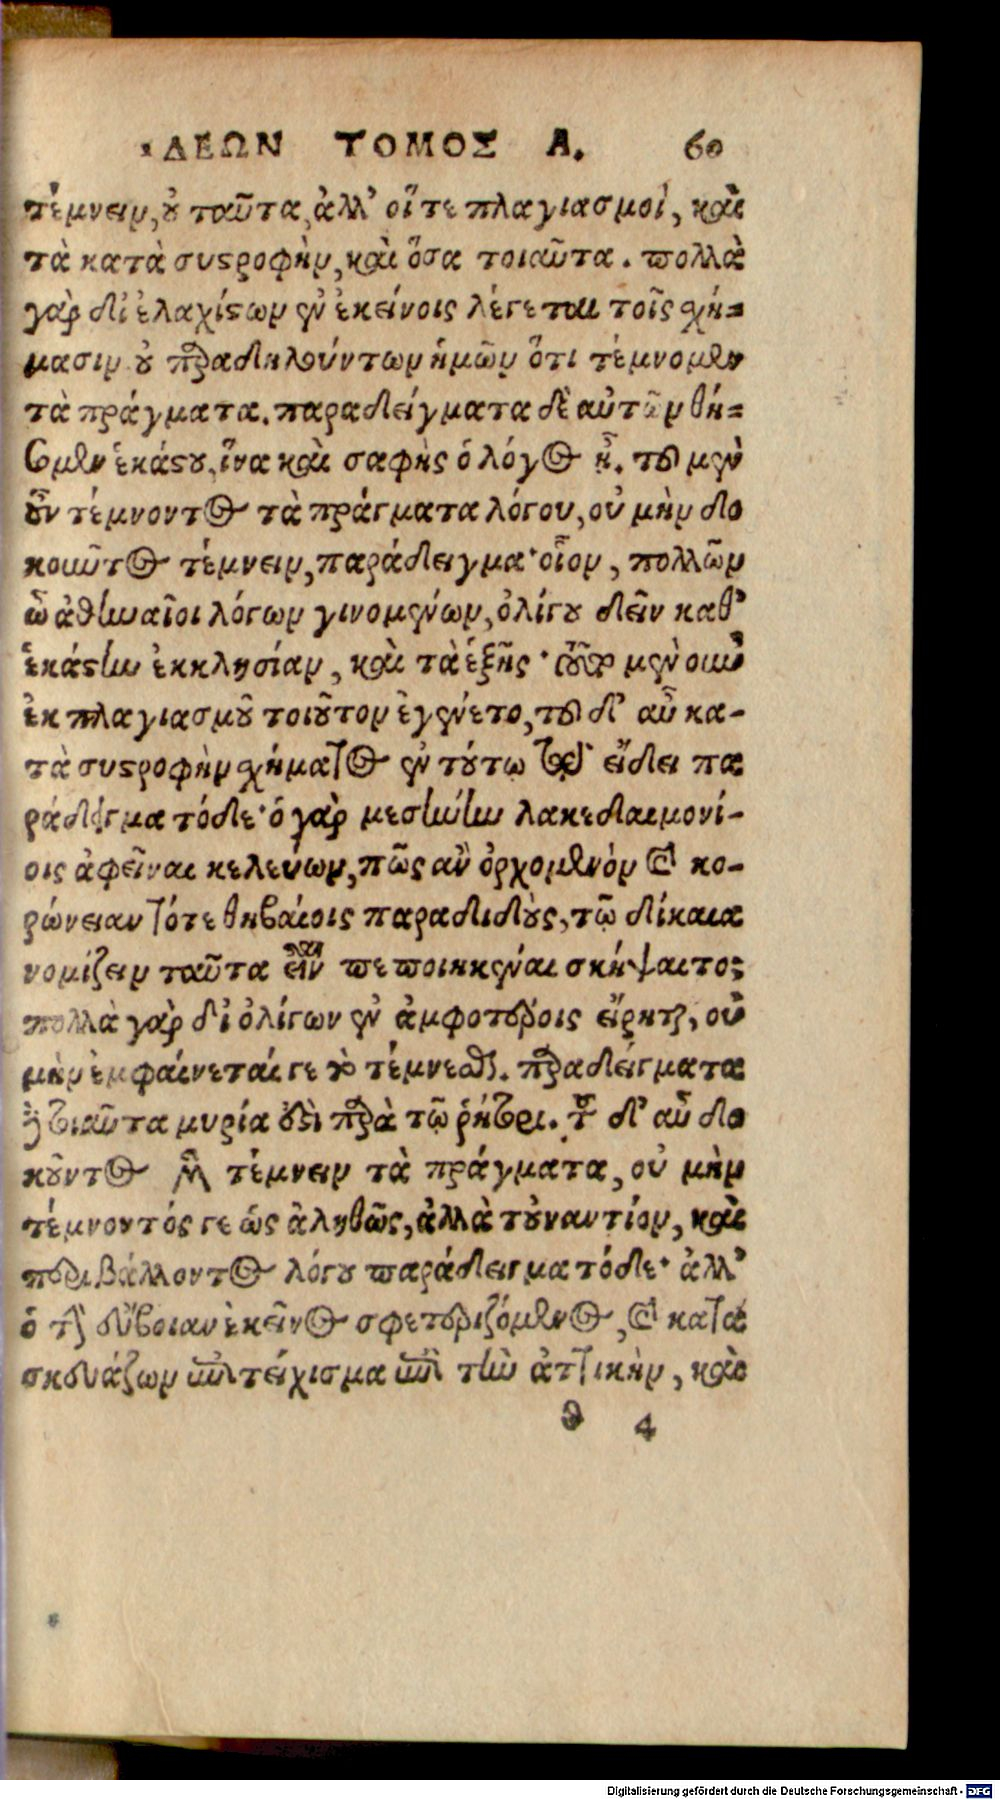 ΙΔΕΩΝ ΤΟΜΟΣ Α. 60
τέμνειν, ȣ ταῦτα, ἀλλ’ οἵ τε πλαγιασμοὶ, καὶ
τὰ κατὰ συϛροφὴν, καὶ ὅσα τοιαῦτα. πολλὰ
γὰρ δι’ ἐλαχίϛων ἐν ἐκείνοις λέγεται τοῖς χή=
μασιν ȣ παραδηλούντων ἡμῶν ὅτι τέμνομεν
τὰ πράγματα. παραδείγματα δὲ αὐτῶν θή=
σομεν ἑκάϛȣ, ἵνα καὶ σαφὴς ὁ λόγος ᾖ. τοῦ μὲν
ȣ̓͂ν τέμνοντος τὰ πράγματα λόγου, οὐ μὴν δο
κοῦντος τέμνειν, παράδειγμα· οἷον, πολλῶν
ὦ ἀθηναῖοι λόγων γινομένων, ὀλίγȣ δεῖν καθ’
ἑκάϛην ἐκκλησίαν, καὶ τὰ ἑξῆς· τοῦτο μὲν οὖν
ἐκ πλαγιασμȣ͂ τοιȣ͂τον ἐγένετο, τοῦ δ’ αὖ κα-
τὰ συϛροφὴν χήματος ἐν τȣ́τῳ τῷ εἴδει πα
ράδειγμα τόδε· ὁ γὰρ μεσήνην λακεδαιμονί-
οις ἀφεῖναι κελεύων, πῶς ἂν ὀρχομενὸν καὶ κο-
ρώνειαν τότε θηβαίοις παραδιδȣ̀ς, τῷ δίκαια
νομίζειν ταῦτα εἶναι πεποιηκέναι σκήψαιτο;
πολλὰ γὰρ δι’ ὀλίγων ἐν ἀμφοτέροις εἴρηται, οὐ
μὴν ἐμφαίνεταί γε τὸ τέμνεσθαι. παραδείγματα
δὲ τοιαῦτα μυρία ȣ̓ϛὶ παρὰ τῷ ῥήτορι. τοῦ δ’ αὖ δο
κȣ͂ντος μὲν τέμνειν τὰ πράγματα, οὐ μὴν
τέμνοντός γε ὡς ἀληθῶς, ἀλλὰ τȣ̓ναντίον, καὶ
περιβάλλοντος λόγȣ παράδειγμα τόδε· ἀλλ’
ὁ τὴν εὔβοιαν ἐκεῖνος σφετεριζόμενος, καὶ κατα
σκευάζων ἐπιτείχισμα ἐπὶ τὴν ἀττικὴν, καὶ
θ 4
Digitalisierung gefördert durch die Deutsche Forschungsgemeinschaft - DFG